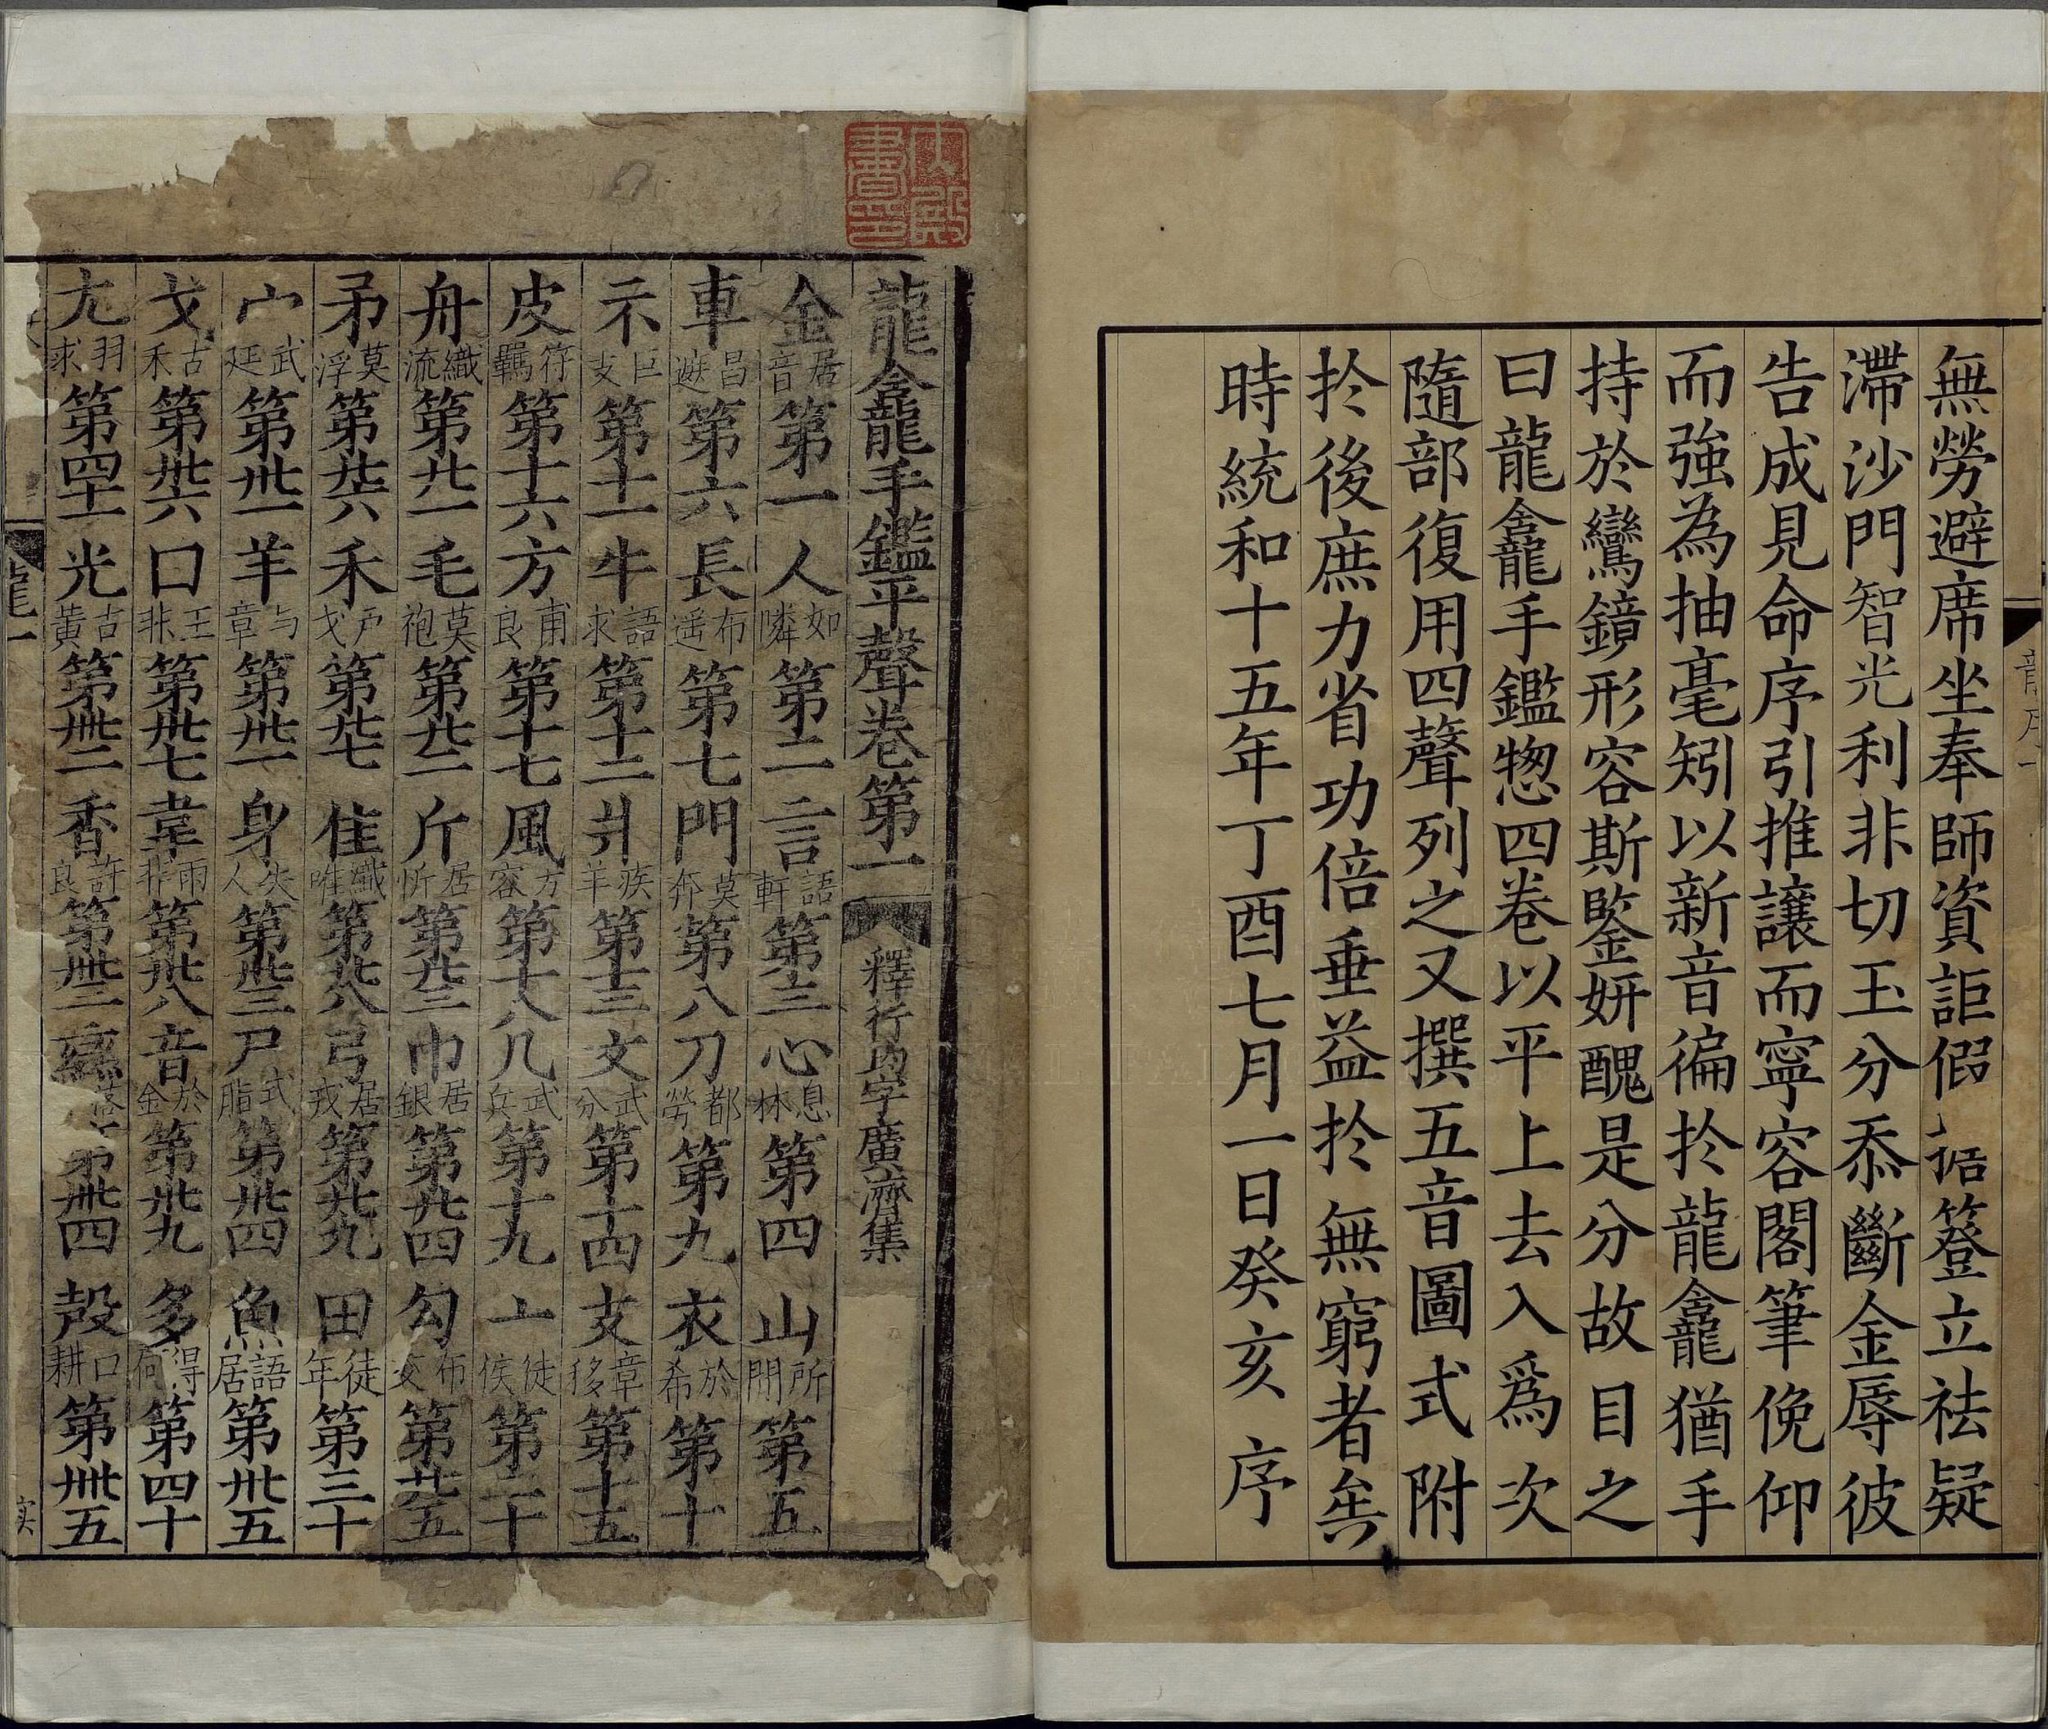 無勞避席坐奉師資詎假括簦立袪疑
滯沙門智光利非切玉分忝斷金辱彼
告成見命序引推讓而寧容閣筆俛仰
而強為抽毫矧以新音徧扵龍龕猶手
持於鸞鏡形容斯鑒妍醜是分故目之
曰龍龕手鑑惣四卷以平上去入爲次
隨部復用四聲列之又撰五音圖式附
扵後庶力省功倍垂益扵無窮者矣
時統和十五年丁酉七月一日癸亥序
龍龕手鑑平聲卷第一 釋行均字廣濟集
金居音第一 人如隣第二 言語軒第三 心息林第四 山所間第五
車昌遮第六 長布遥第七 門莫奔第八 刀都勞第九 衣於希第十
示巨支第十一 牛語求第十二 爿疾羊第十三 文武分第十四 支章移第十五
皮符羈第十六 方甫良第十七 風方容第十八 几武兵第十九 亠徒侯第二十
舟織流第廿一 毛莫袍第廿二 斤居忻第廿三 巾居銀第廿四 勾布交第廿五
矛莫浮第廿六 禾戸戈第廿七 隹織唯第廿八 弓居戎第廿九 田徒年第三十
宀武延第卅一 羊与章第卅二 身失人第卅三 尸式脂第卅四 魚語居第卅五
戈古禾第卅六 囗王非第卅七 韋雨非第卅八 音於金第卅九 多得何第四十
尢羽求第四十一 光古黄第卌二 香許良第卌三 第卌四 殸口耕第卌五
龍一